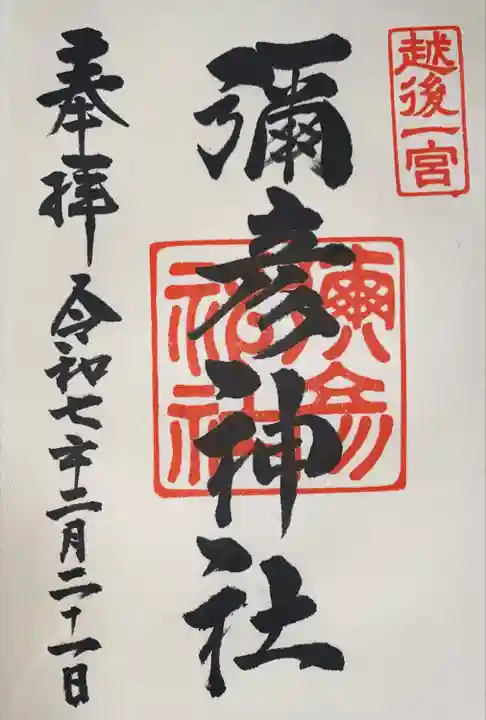 越後一宮
彌彦神社
奉拝 令和七年二月二十一日